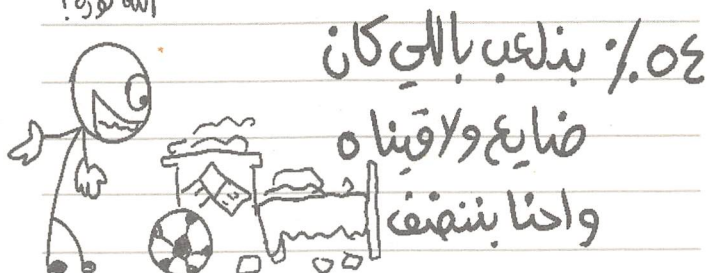 الله
٥٤٪ بنلعب باللي كان
ضايع ولاقيناه
واحنا بننضف